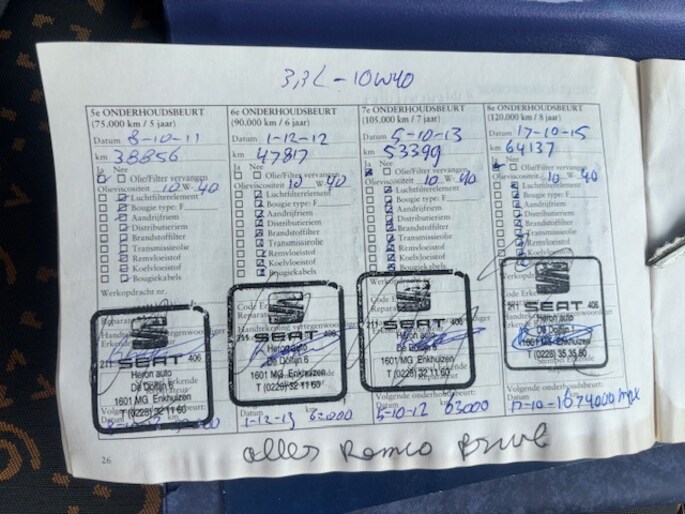 3,3L - 10W40
5e ONDERHOUDSBEURT
(75.000 km / 5 jaar)
Datum 8-10-11
km 38856
Ja Nee
Olie/Filter vervangen
Olieviscositeit 10 W- 40
Luchtfilterelement
Bougie type: F
Aandrijfriem
Distributieriem
Brandstoffilter
Transmissieolie
Remvloeistof
Koelvloeistof
Bougiekabels
Werkopdracht nr.
SEAT
211 406
Heron auto
De Dolfijn 6
1601 MG Enkhuizen
T (0228) 32 11 60
6e ONDERHOUDSBEURT
(90.000 km / 6 jaar)
Datum 1-12-12
km 47817
Ja Nee
Olie/Filter vervangen
Olieviscositeit 10 W 40
Luchtfilterelement
Bougie type: F
Aandrijfriem
Distributieriem
Brandstoffilter
Transmissieolie
Remvloeistof
Koelvloeistof
Bougiekabels
SEAT
406
Heron auto
De Dolfijn 6
1601 MG Enkhuizen
T (0228) 32 11 60
Datum
1-12-13
7e ONDERHOUDSBEURT
(105.000 km / 7 jaar)
Datum 5-10-13
km 53399
Ja Nee
Olie/Filter vervangen
Olieviscositeit 10 W 40
Luchtfilterelement
Bougie type: F
Aandrijfriem
Distributieriem
Brandstoffilter
Transmissieolie
Remvloeistof
Koelvloeistof
Bougiekabels
SEAT
211 406
Heron auto
De Dolfijn 6
1601 MG Enkhuizen
T (0228) 32 11 60
Volgende onderhoudsbeurt:
5-10-12 63000
8e ONDERHOUDSBEURT
(120.000 km / 8 jaar)
Datum 17-10-15
km 64137
Ja Nee
Olie/Filter vervangen
Olieviscositeit 10 W 40
Luchtfilterelement
Bougie type: F
Aandrijfriem
Distributieriem
Brandstoffilter
Transmissieolie
Remvloeistof
Koelvloeistof
Bougiekabels
SEAT
211 406
Heron auto
De Dolfijn 6
1601 MG Enkhuizen
T (0228) 35 35 80
Volgende onderhoudsbeurt:
Datum
17-10-16 74000
26
alles Romeo